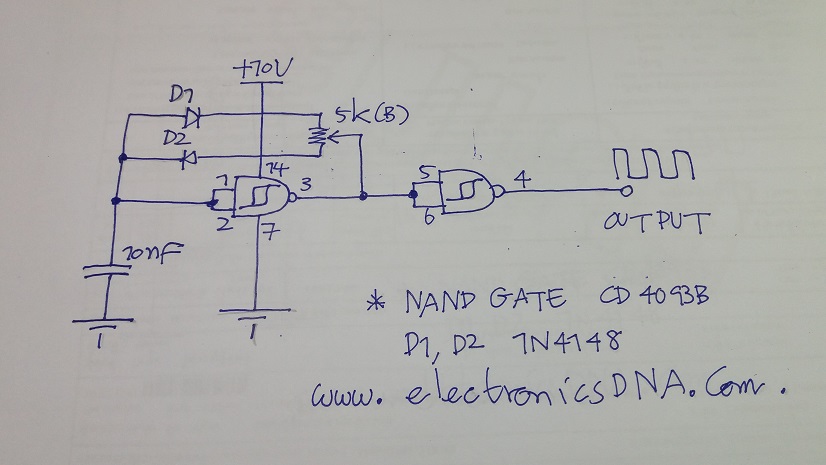 +10V
D1
5k(B)
D2
14
1
3
2
7
5
4
6
OUTPUT
10nF
* NAND GATE CD4093B
D1, D2 1N4148
www.electronicsDNA.Com.